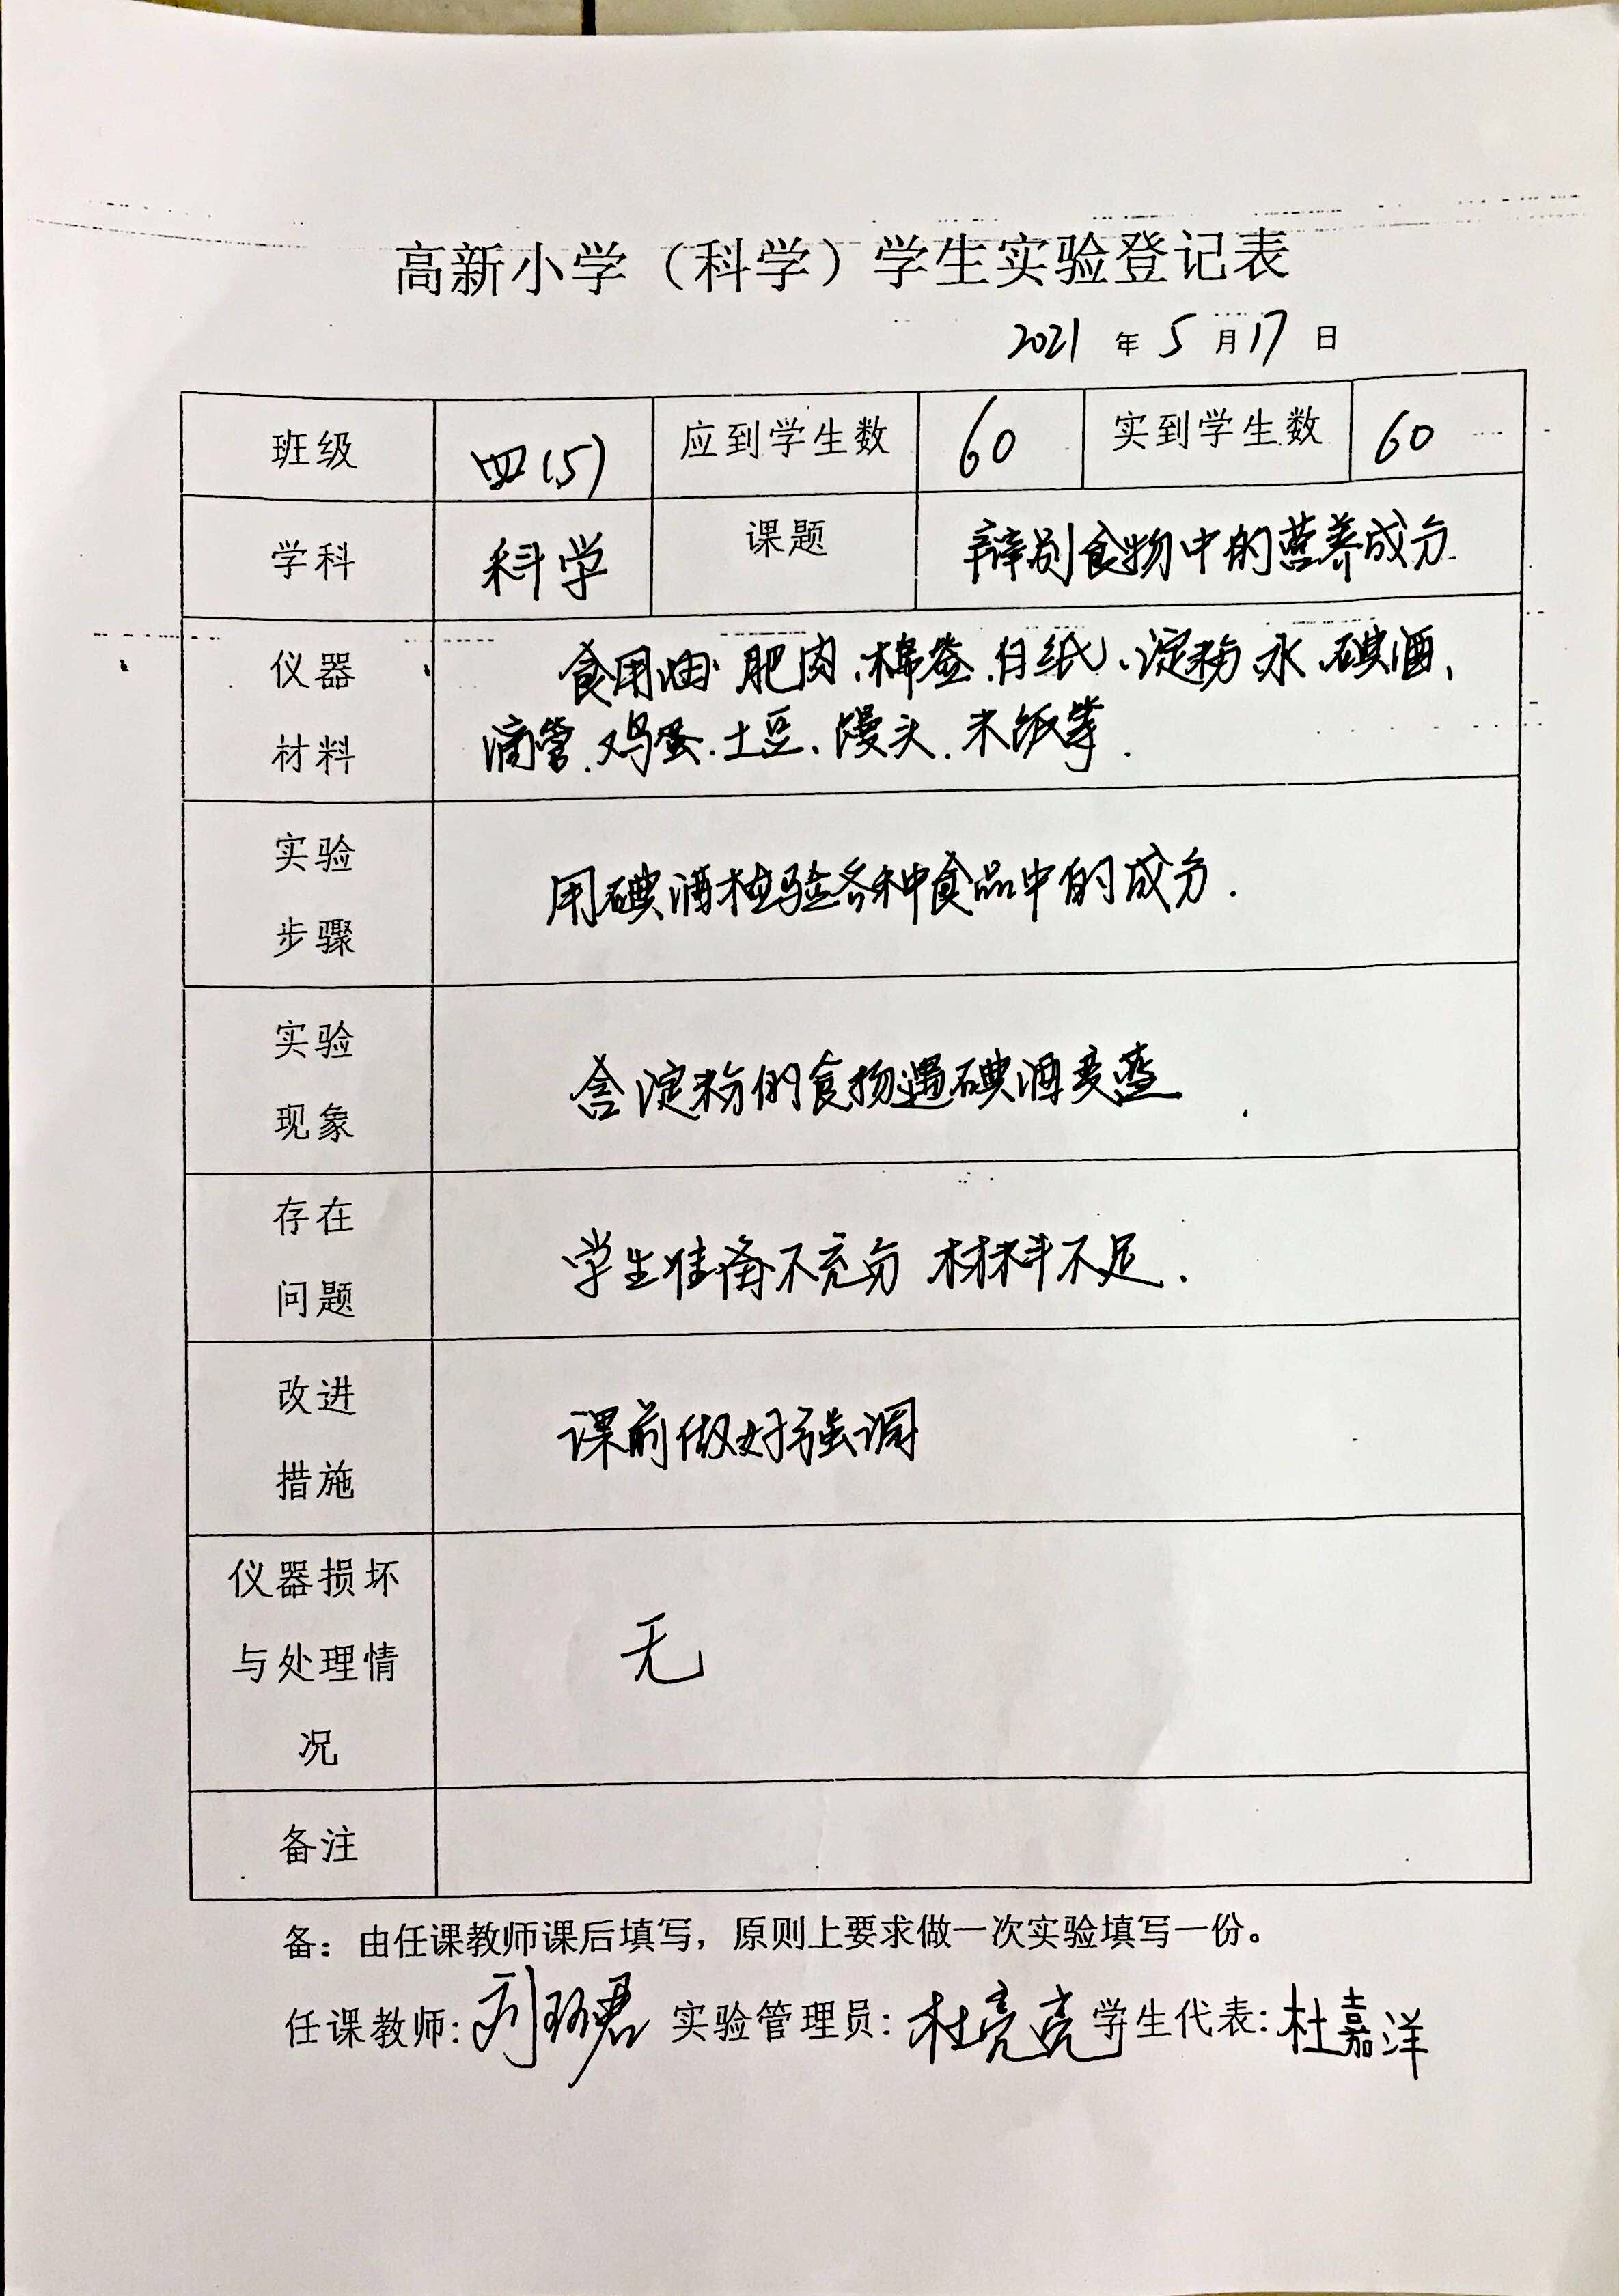 高新小学（科学）学生实验登记表
2021 年 5 月 17 日
班级 四(5) 应到学生数 60 实到学生数 60
学科 科学 课题 辩别食物中的营养成分.
仪器
材料
食用油 肥肉、棉签、白纸、淀粉、水、碘酒、
滴管、鸡蛋、土豆、馒头、米饭等.
实验
步骤
用碘酒检验各种食品中的成分.
实验
现象
含淀粉的食物遇碘酒变蓝
存在
问题
学生准备不充分 材料不足.
改进
措施
课前做好强调
仪器损坏
与处理情
况
无
备注
备：由任课教师课后填写，原则上要求做一次实验填写一份。
任课教师: 刘君 实验管理员: 杜亮亮 学生代表: 杜嘉洋